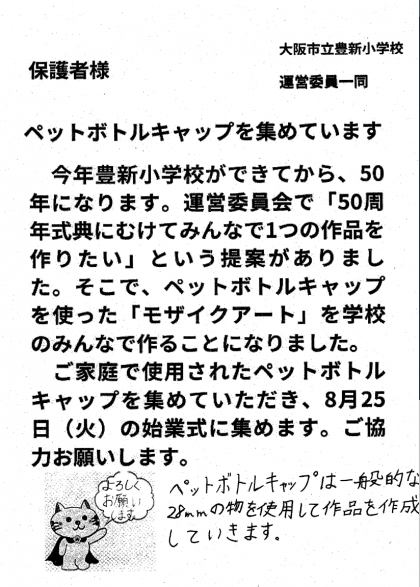 大阪市立豊新小学校
保護者様
運営委員一同
ペットボトルキャップを集めています
今年豊新小学校ができてから、50
年になります。運営委員会で「50周
年式典にむけてみんなで1つの作品を
作りたい」という提案がありまし
た。そこで、ペットボトルキャップ
を使った「モザイクアート」を学校
のみんなで作ることになりました。
ご家庭で使用されたペットボトル
キャップを集めていただき、8月25
日（火）の始業式に集めます。ご協
力お願いします。
よろしく
お願い
します
ペットボトルキャップは一般的な
28mmの物を使用して作品を作成
していきます。